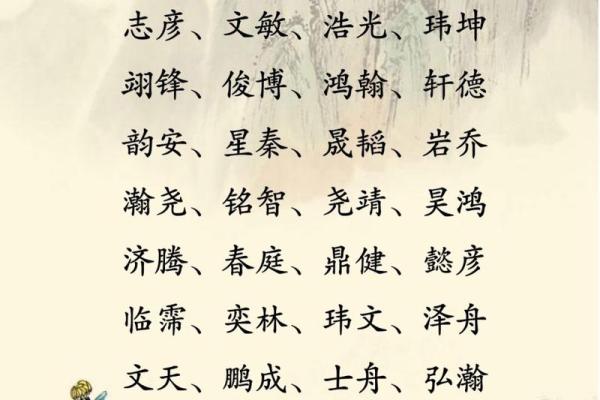 志彦、文敏、浩光、玮坤
翊锋、俊博、鸿翰、轩德
韵安、星秦、晟韬、岩乔
瀚尧、铭智、尧靖、昊鸿
济腾、春庭、鼎健、懿彦
临霈、奕林、玮文、泽舟
文天、鹏成、士舟、弘瀚